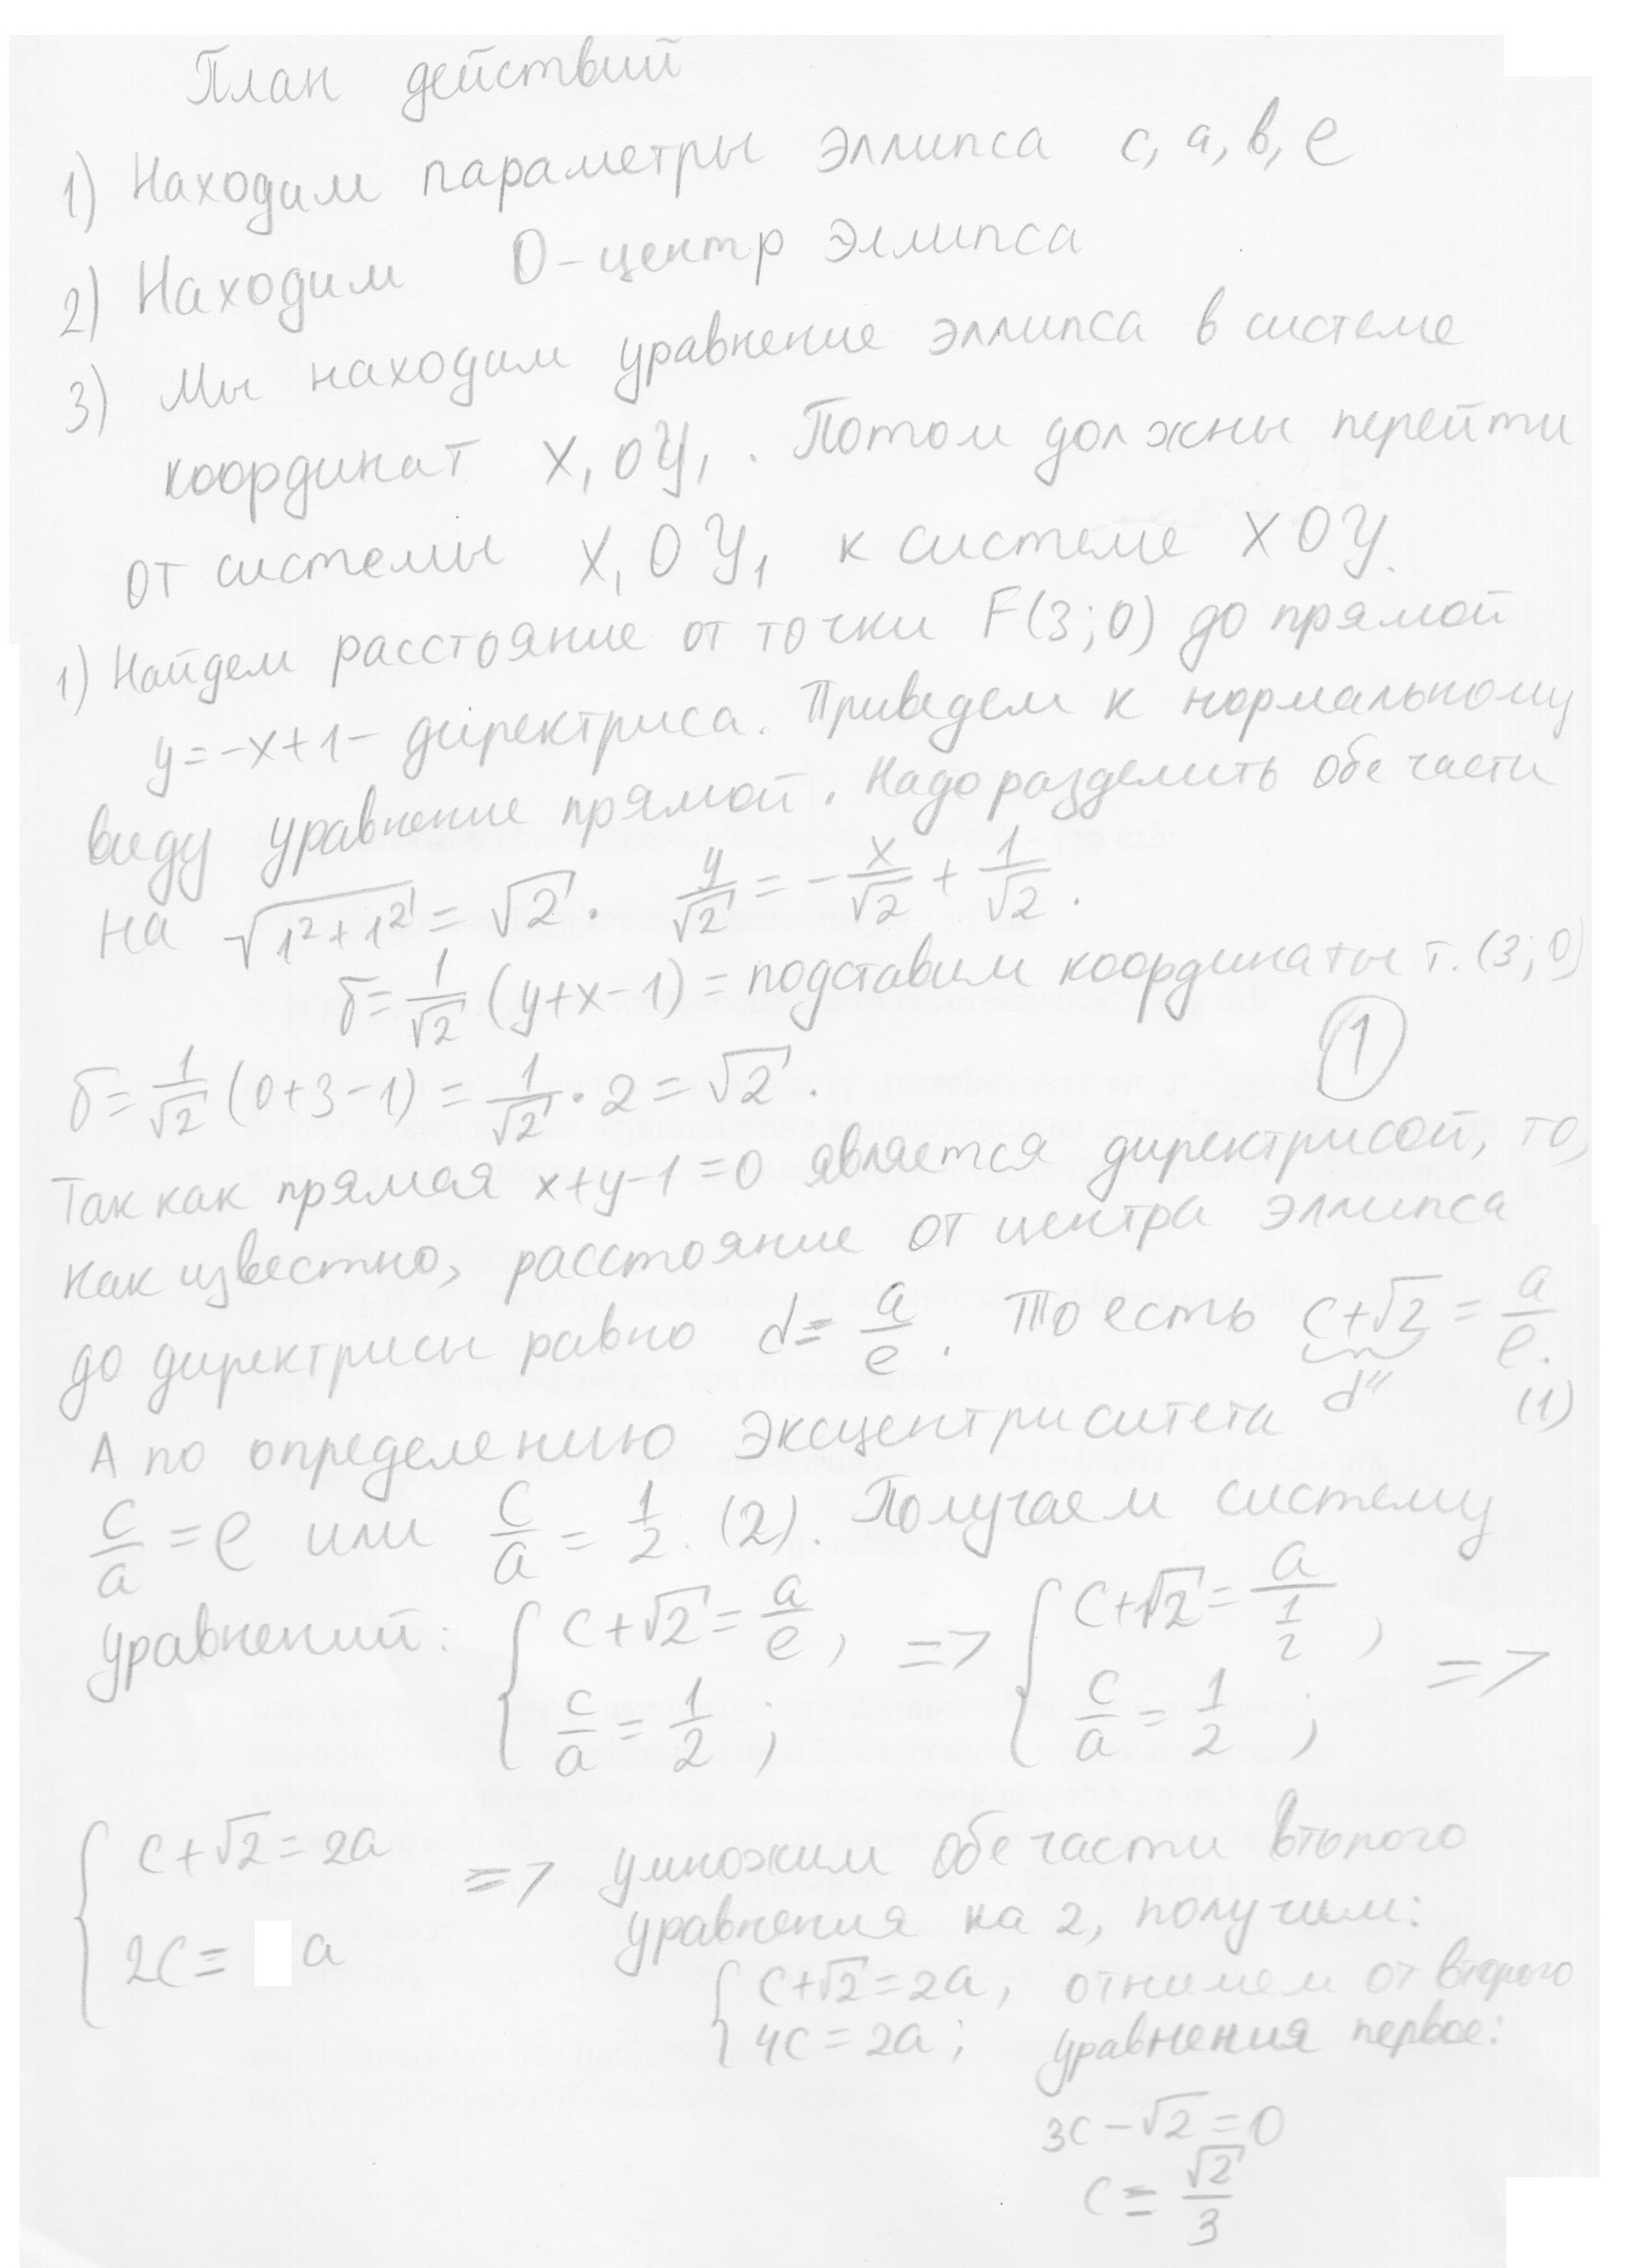 План действий
1) Находим параметры эллипса c, a, b, e
2) Находим O - центр эллипса
3) Мы находим уравнение эллипса в системе
координат X₁OY₁. Потом должны перейти
от системы X₁OY₁ к системе XOY.
1) Найдем расстояние от точки F(3;0) до прямой
y=-x+1- директриса. Приведем к нормальному
виду уравнение прямой. Надо разделить обе части
на √(1²+1²) = √2. y/√2 = -x/√2 + 1/√2.
δ = 1/√2 (y+x-1) = подставим координаты т. (3;0)
1
δ = 1/√2 (0+3-1) = 1/√2 · 2 = √2.
Так как прямая x+y-1=0 является директрисой, то,
как известно, расстояние от центра эллипса
до директрисы равно d = a/e. То есть c+√2 = a/e.
d" (1)
А по определению эксцентриситета
c/a = e или c/a = 1/2. (2). Получаем систему
уравнений: { c+√2 = a/e, c/a = 1/2; => { c+√2 = a/(1/2), c/a = 1/2; =>
{ c+√2 = 2a => умножим обе части второго
2c = a уравнения на 2, получим:
{ c+√2 = 2a, отнимем от второго
4c = 2a; уравнения первое:
3c - √2 = 0
c = √2/3